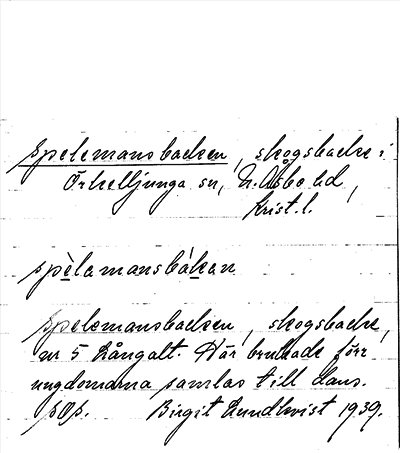 Spelemansbacken, skogsbacke i
Örkelljunga sn, N. Åsbo hd,
Krist. l.
spèlamansbákan
Spelemansbacken, skogsbacke,
nr 5 Långalt. Här brukade förr
ungdomarna samlas till dans.
Birgit Lundkvist 1939.